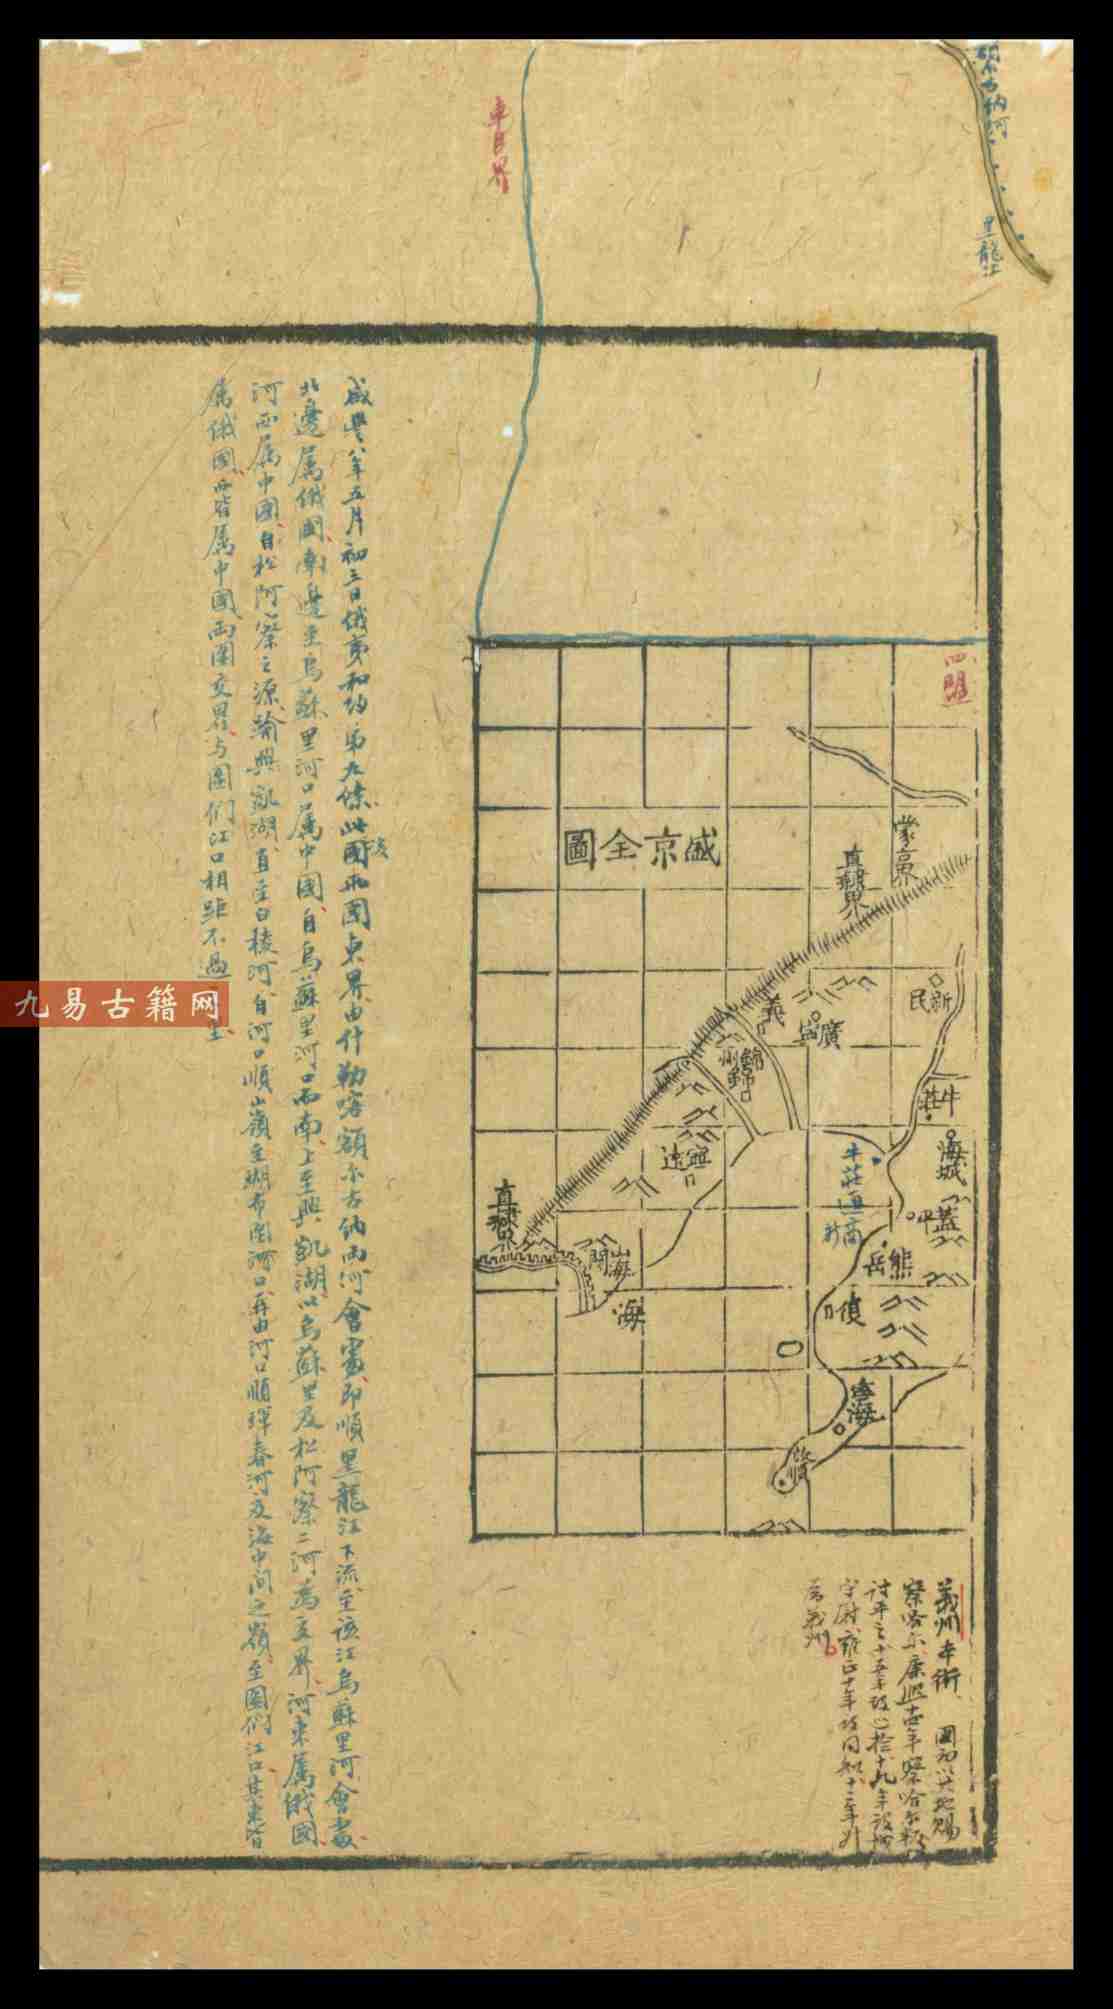 額尔古納河
黑龍江
車臣界
四盟
盛京全圖
蒙古界
直隸界
新民
廣寧
義
錦州
錦
牛莊
海城
寧遠
牛莊通商
新
蓋平
熊岳
復
寧海
旅順
直隸界
山海関
海
義州 本衛 國初以此地賜
察哈尔康熙十四年察哈尔叛
討平之十五年
守尉雍正十年改同知十二年升
為義州
咸豐八年五月初三日俄夷和約第九條此後兩國東界由什勒喀額尔古納兩河會處即順黑龍江下流至該江烏蘇里河會處
北邊属俄國南邊至烏蘇里河口属中國自烏蘇里河口而南上至興凱湖以烏蘇里及松阿察二河為交界河東属俄國
河西属中國自松阿察之源踰興凱湖直至白稜河自河口順山嶺至瑚布圖河口再由河口順琿春河及海中间之嶺至圖们江口其東皆
属俄國西皆属中國兩國交界与圖们江口相距不過
九易古籍网